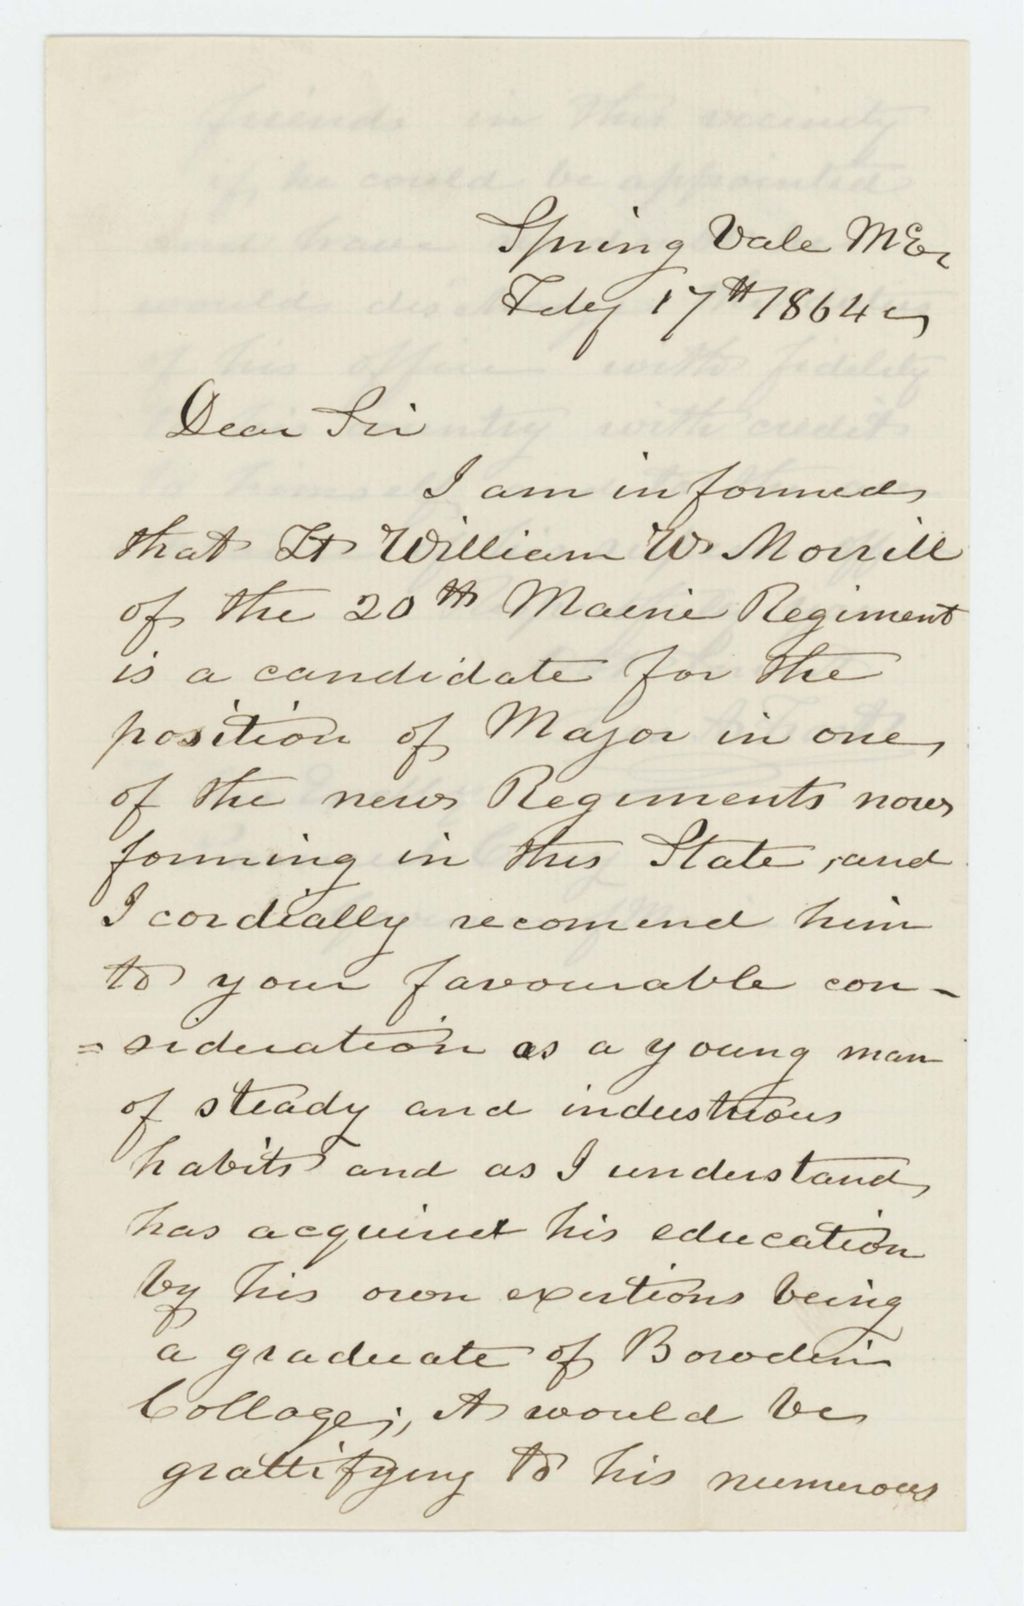 Spring Vale Me
Feby 17th 1864
Dear Sir
I am informed
that Lt William W Morrill
of the 20th Maine Regiment
is a candidate for the
position of Major in one
of the new Regiments now
forming in this State, and
I cordially recomend him
to your favourable con-
=sideration as a young man
of steady and industrious
habits and as I understand
has acquired his education
by his own exertions being
a graduate of Bowdin
Collage;, It would be
grattifying to his numerous